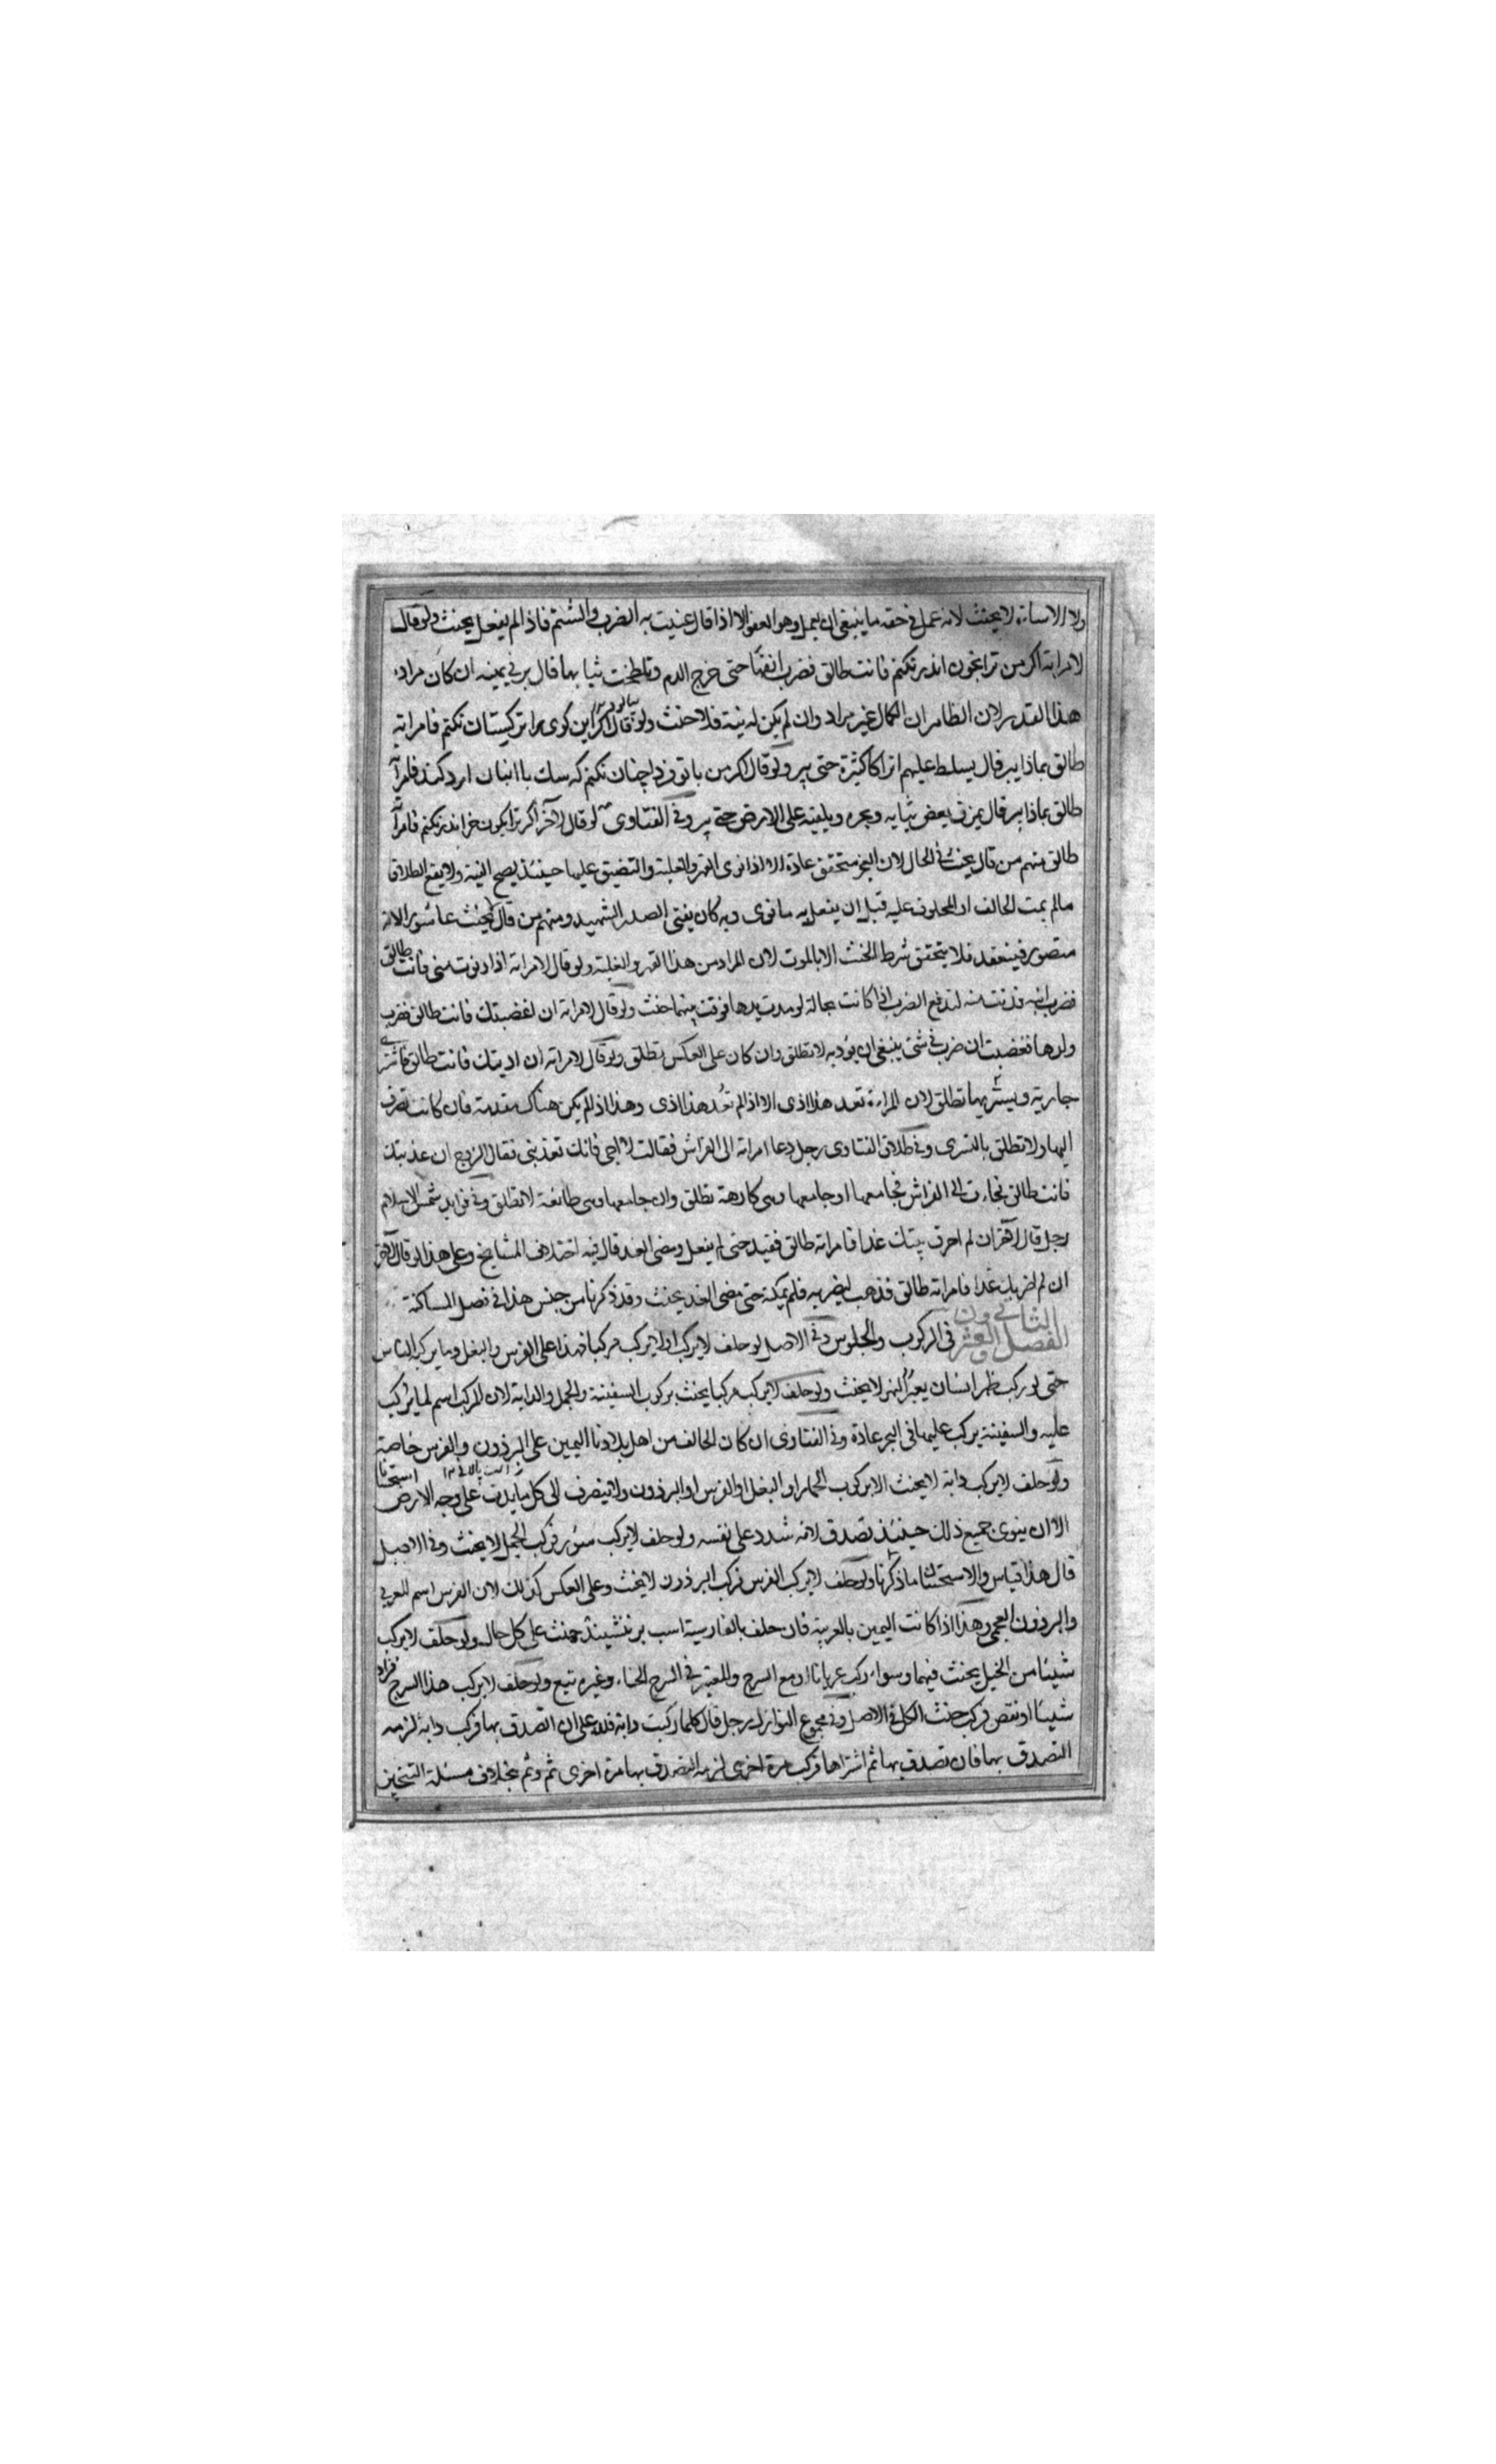 ولا الاساءة لا يحنث لانه عمل في حقه ما ينبغي ان يعمل وهو العفو الا اذا قال عنيت به الضرب والشتم فاذا لم يفعل يحنث ولو قال
لامراته اكر من ترا بخون اندر نكنم فانت طالق فضرب انفها حتى خرج الدم وتلطخت ثيابها قال بر في يمينه ان كان مراده
هذا القدر لان الظاهر ان الكمال غير مراد وان لم يكن له نية فلا حنث ولو قال اكر اين كوى را تركستان نكنم فامراته
طالق بماذا يبر قال يسلط عليهم اتراكا كثيرة حتى يبر ولو قال اكر من با تو فردا چنان نكنم كه سك با انبان ارد كند فامرأته
طالق بماذا يبر قال يمزق بعض ثيابه ويجره ويلقيه على الارض حتى يبر وفي الفتاوى لو قال لآخر اكر ترا بكون خر اندر نكنم فامرأته
طالق منهم من قال يحنث في الحال لان العجز متحقق عادة الا اذا نوى القهر والغلبة والتضييق عليها حينئذ يصح النية ولا يقع الطلاق
مالم يمت الحالف او المحلوف عليه قبل ان يفعل به ما نوى وبه كان يفتي الصدر الشهيد ومنهم من قال لا يحنث لانه
متصور فينعقد فلا يتحقق شرط الحنث الا بالموت لان المراد من هذا القهر والغلبة ولو قال لامراته اذا دنوت مني فانت طالق
فضرب ابنه فدنت منه لتدفع الضرب اذا كانت بحالة لو مدت يدها فوقت بينهما حنث ولو قال لامراته ان اغضبتك فانت طالق فضرب
ولدها فغضبت ان ضرب في شئ ينبغي ان يؤدبه لا تطلق وان كان على العكس تطلق ولو قال لامراته ان اذيتك فانت طالق فاشترى
جارية وتسرى بها تطلق لان المراءة تعد هذا اذى الا اذا لم تعد هذا اذى وهذا اذا لم يكن هناك مقدمة فان كانت تصرف
اليها ولا تطلق بالتسرى وفي طلاق الفتاوى رجل دعا امراته الى الفراش فقالت لا اجئ فانك تعذبني فقال الزوج ان عذبتك
فانت طالق فجاءت الى الفراش فجامعها ان جامعها وهي كارهة تطلق وان جامعها وهي طائعة لا تطلق وفي فوايد شمس الاسلام
رجل قال لآخر ان لم احرق بيتك غدا فامراته طالق فقيد حتى لم يفعل ومضى الغد قال فيه اختلاف المشايخ وعلى هذا لو قال لآخر
ان لم اضربك غدا فامراته طالق فذهب ليضربه فلم يمكنه حتى مضى الغد يحنث وقد ذكرنا من جنس هذا في فصل المساكنة
الفصل الثاني والعشرون في الركوب والجلوس وفي الاصل لو حلف لا يركب او لا يركب مركبا فهذا على الفرس والبغل وما يركب الناس
حتى لو ركب ظهر انسان يعبر النهر لا يحنث ولو حلف لا يركب مركبا يحنث بركوب السفينة والجمل والدابة لان المركب اسم لما يركب
عليه والسفينة يركب عليها في البحر عادة وفي الفتاوى ان كان الحالف من اهل بلادنا اليمين على البرذون والفرس خاصة
ولو حلف لا يركب دابة لا يحنث الا بركوب الحمار او البغل او الفرس او البرذون ولا ينصرف الى كل ما يدب على وجه الارض استحسانا
الا ان ينوي جميع ذلك حينئذ تصدق لانه شدد على نفسه ولو حلف لا يركب ستور فركب الجمل لا يحنث وفي الاصل
قال هذا قياس والاستحسان ما ذكرنا ولو حلف لا يركب الفرس فركب البرذون لا يحنث وعلى العكس كذلك لان الفرس اسم للعربي
والبرذون العجمي وهذا اذا كانت اليمين بالعربية فان حلف بالفارسية اسب بر ننشيند حنث على كل حال ولو حلف لا يركب
شيئا من الخيل يحنث فيهما وسواء ركب عريانا او مع السرج والمعتبر في السرج الحناء وغيره تبع ولو حلف لا يركب هذا السرج فزاد
شيئا او نقص فركب حنث الكل في الاصل وفي مجموع النوازل رجل قال كلما ركبت دابة فلله علي ان اتصدق بها فركب دابة لزمه
التصدق بها فان تصدق بها ثم اشتراها فركب مرة اخرى لزمه التصدق بها مرة اخرى ثم وثم بخلاف مسئلة التنجيز